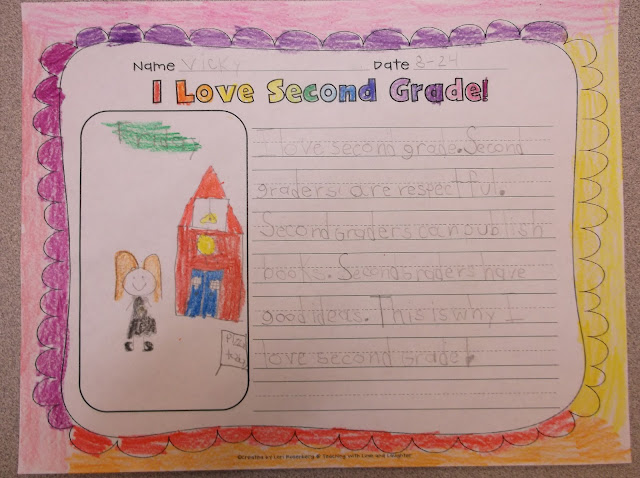 Name Vicky Date 8-24
I Love Second Grade!
I love second grade. Second
graders are respectful.
Second graders can publish
books. Second graders have
good ideas. This is why I
love second grade!
©Created by Lori Rosenberg @ Teaching with Love and Laughter